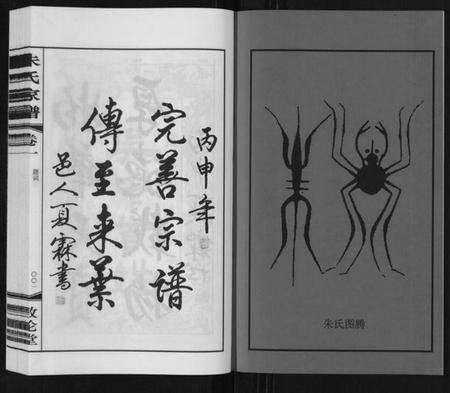 丙申年
完善宗谱
傳至来葉
邑人夏霖書
朱氏家譜
卷一
題詞
〇〇一
敦伦堂
朱氏图腾